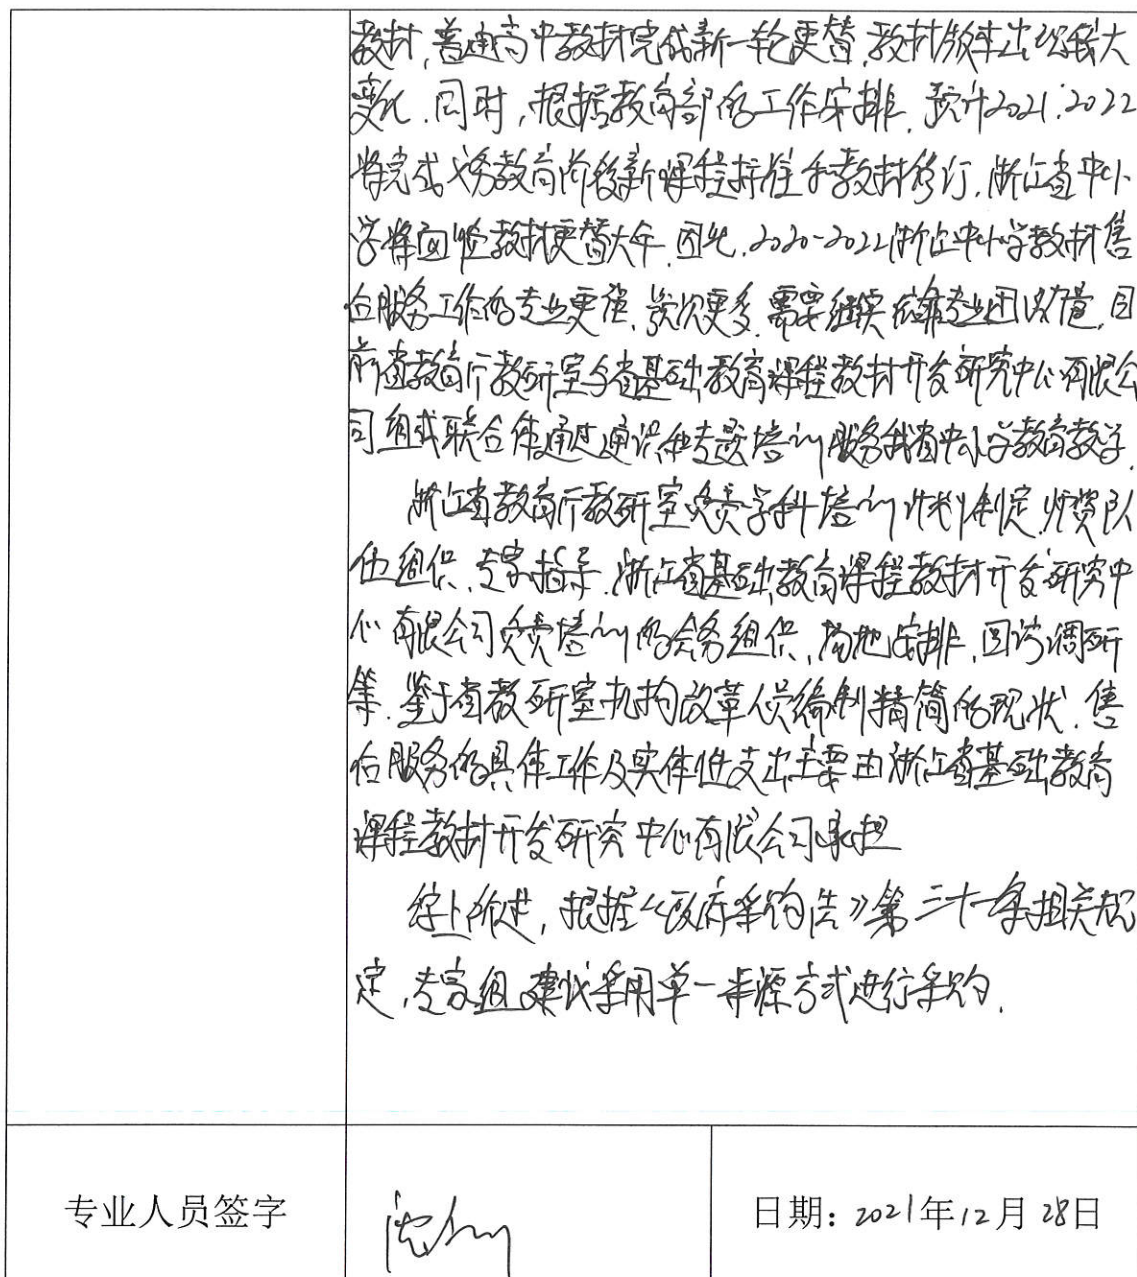 教材,普通高中教材完成新一轮更替,教材版本出现较大
变化.同时,根据教育部的工作安排,预计2021.2022
将完成义务教育阶段新课程标准和教材修订,浙江省中小
学将面临教材更替大年.因此,2020-2022浙江中小学教材售
后服务工作的专业更强,频次更多,需要继续依靠专业团队力量,目
前省教育厅教研室与省基础教育课程教材开发研究中心有限公
司组成联合体通过通识和专题培训服务我省中小学教育教学.
浙江省教育厅教研室负责学科培训计划制定,师资队
伍组织、专家指导.浙江省基础教育课程教材开发研究中
心有限公司负责培训的会务组织、场地安排、回访调研
等.鉴于省教研室机构改革人员编制精简的现状.售
后服务的具体工作及实体化支出主要由浙江省基础教育
课程教材开发研究中心有限公司承担
综上所述,根据《政府采购法》第三十一条相关规
定,专家组建议采用单一来源方式进行采购.
专业人员签字
日期:2021年12月28日